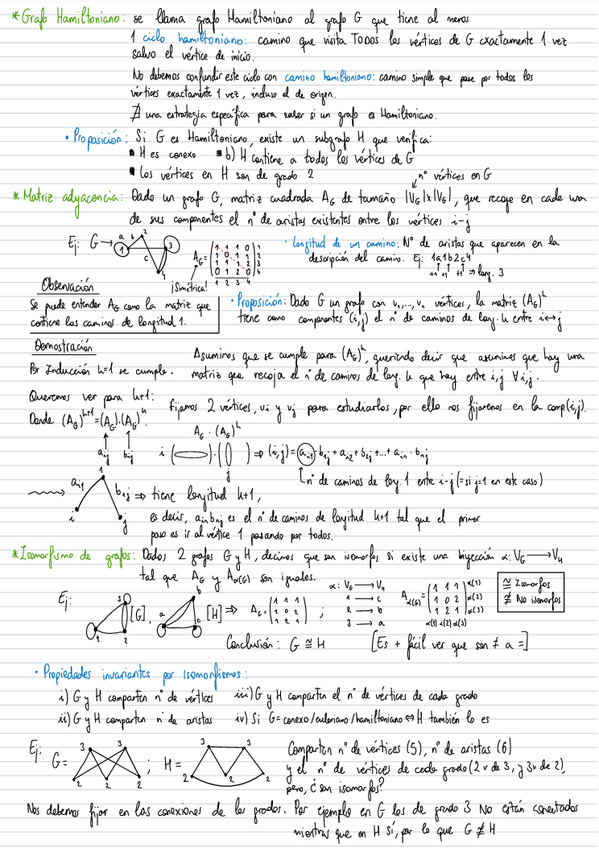 * Grafo Hamiltoniano: se llama grafo Hamiltoniano al grafo G que tiene al menos
1 ciclo hamiltoniano: camino que visita TODOS los vértices de G exactamente 1 vez
salvo el vértice de inicio.
No debemos confundir este ciclo con camino hamiltoniano: camino simple que pase por todos los
vértices exactamente 1 vez, incluso el de origen.
∄ una estrategia específica para saber si un grafo es Hamiltoniano.
· Proposición: Si G es Hamiltoniano, existe un subgrafo H que verifica:
▪ H es conexo ▪ b) H contiene a todos los vértices de G
▪ Los vértices en H son de grado 2
nº vértices en G
* Matriz adyacencia: Dado un grafo G, matriz cuadrada A_G de tamaño |V_G|x|V_G|, que recoge en cada una
de sus componentes el nº de aristas existentes entre los vértices i-j
Ej: G →
· Longitud de un camino: Nº de aristas que aparecen en la
descripción del camino. Ej: 1a1b2c4
→ long. 3
A_G =
¡Simétrica!
Observación
Se puede entender A_G como la matriz que
contiene los caminos de longitud 1.
· Proposición: Dado G un grafo con v₁,...,vₙ vértices, la matriz (A_G)^k
tiene como componentes (i,j) el nº de caminos de long. k entre i↔j
Demostración
Por Inducción k=1 se cumple.
Asumimos que se cumple para (A_G)^k, queriendo decir que asumimos que hay una
matriz que recoja el nº de caminos de long. k que hay entre i,j ∀i,j.
Queremos ver para k+1:
Donde (A_G)^k+1 = (A_G)·(A_G)^k
Fijamos 2 vértices, vi y vj para estudiarlos, por ello nos fijaremos en la comp(i,j).
a_ij b_ij
A_G · (A_G)^k
⇒ (i,j) = a_i1·b_1j + a_i2·b_2j + ... + a_in·b_nj
nº de caminos de long. 1 entre i-j (=si j=1 en este caso)
a_i1 b_1j ⇒ tiene longitud k+1,
es decir, a_in b_nj es el nº de caminos de longitud k+1 tal que el primer
paso es ir al vértice 1 pasando por todos.
* Isomorfismo de grafos: Dados 2 grafos G y H, decimos que son isomorfos si existe una biyección α: V_G → V_H
tal que A_G y A_α(G) son iguales.
Ej: [G], [H] ⇒ A_G = (1 1 1 / 1 0 2 / 1 2 1) ;
α: V_G → V_H
1 → c
2 → b
3 → a
A_α(G) = (1 1 1 / 1 0 2 / 1 2 1) α(1) α(2) α(3)
α(1) α(2) α(3)
≅ Isomorfos
≇ No isomorfos
Conclusión: G ≅ H [Es + fácil ver que son ≠ a =]
· Propiedades invariantes por isomorfismos:
i) G y H comparten nº de vértices iii) G y H comparten el nº de vértices de cada grado
ii) G y H comparten nº de aristas iv) Si G = conexo/euleriano/hamiltoniano ⇔ H también lo es
Ej: G = ; H =
3 3 2 2 2
3 3 2 2 2
Comparten nº de vértices (5), nº de aristas (6)
y el nº de vértices de cada grado (2 v de 3, y 3 v de 2),
pero, ¿son isomorfos?
Nos debemos fijar en las conexiones de los grados. Por ejemplo en G los de grado 3 No están conectados
mientras que en H sí, por lo que G ≇ H